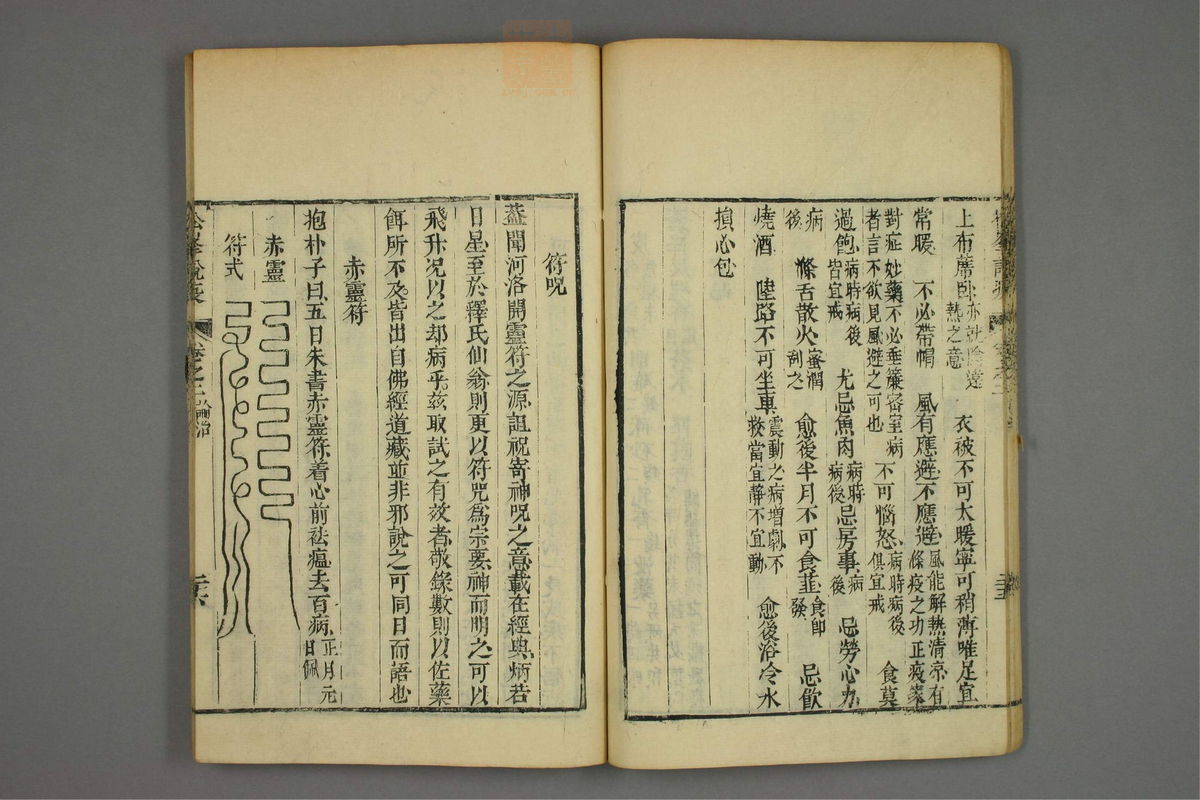 上布蓆臥亦就陰遠熱之意 衣被不可太暖寧可稍薄唯足宜
常暖 不必帶帽 風有應避不應避風能解熱清凉有條疫之功正疫家
對症妙藥不必垂簾密室病者言不欲見風避之可也 不可惱怒病時病後俱宜戒 食莫
過飽病時病後皆宜戒 尤忌魚肉病時病後 忌房事病後 忌勞心力
病後 滌舌散火蜜潤刮之 愈後半月不可食韮食即發 忌飲
燒酒 陸路不可坐車震動之病增劇不救當宜靜不宜動 愈後浴冷水
損心包
符呪
蓋聞河洛開靈符之源詛祝寄神呪之意載在經典炳若
日星至於釋氏仙翁則更以符咒爲宗要神而明之可以
飛升况以之却病乎茲取試之有效者敬錄數則以佐藥
餌所不及皆出自佛經道藏並非邪說之可同日而語也
赤靈符
抱朴子曰五日朱書赤靈符着心前祛瘟去百病正月元日佩
赤靈
符式
松峯說疫
卷之二
論治
二十六